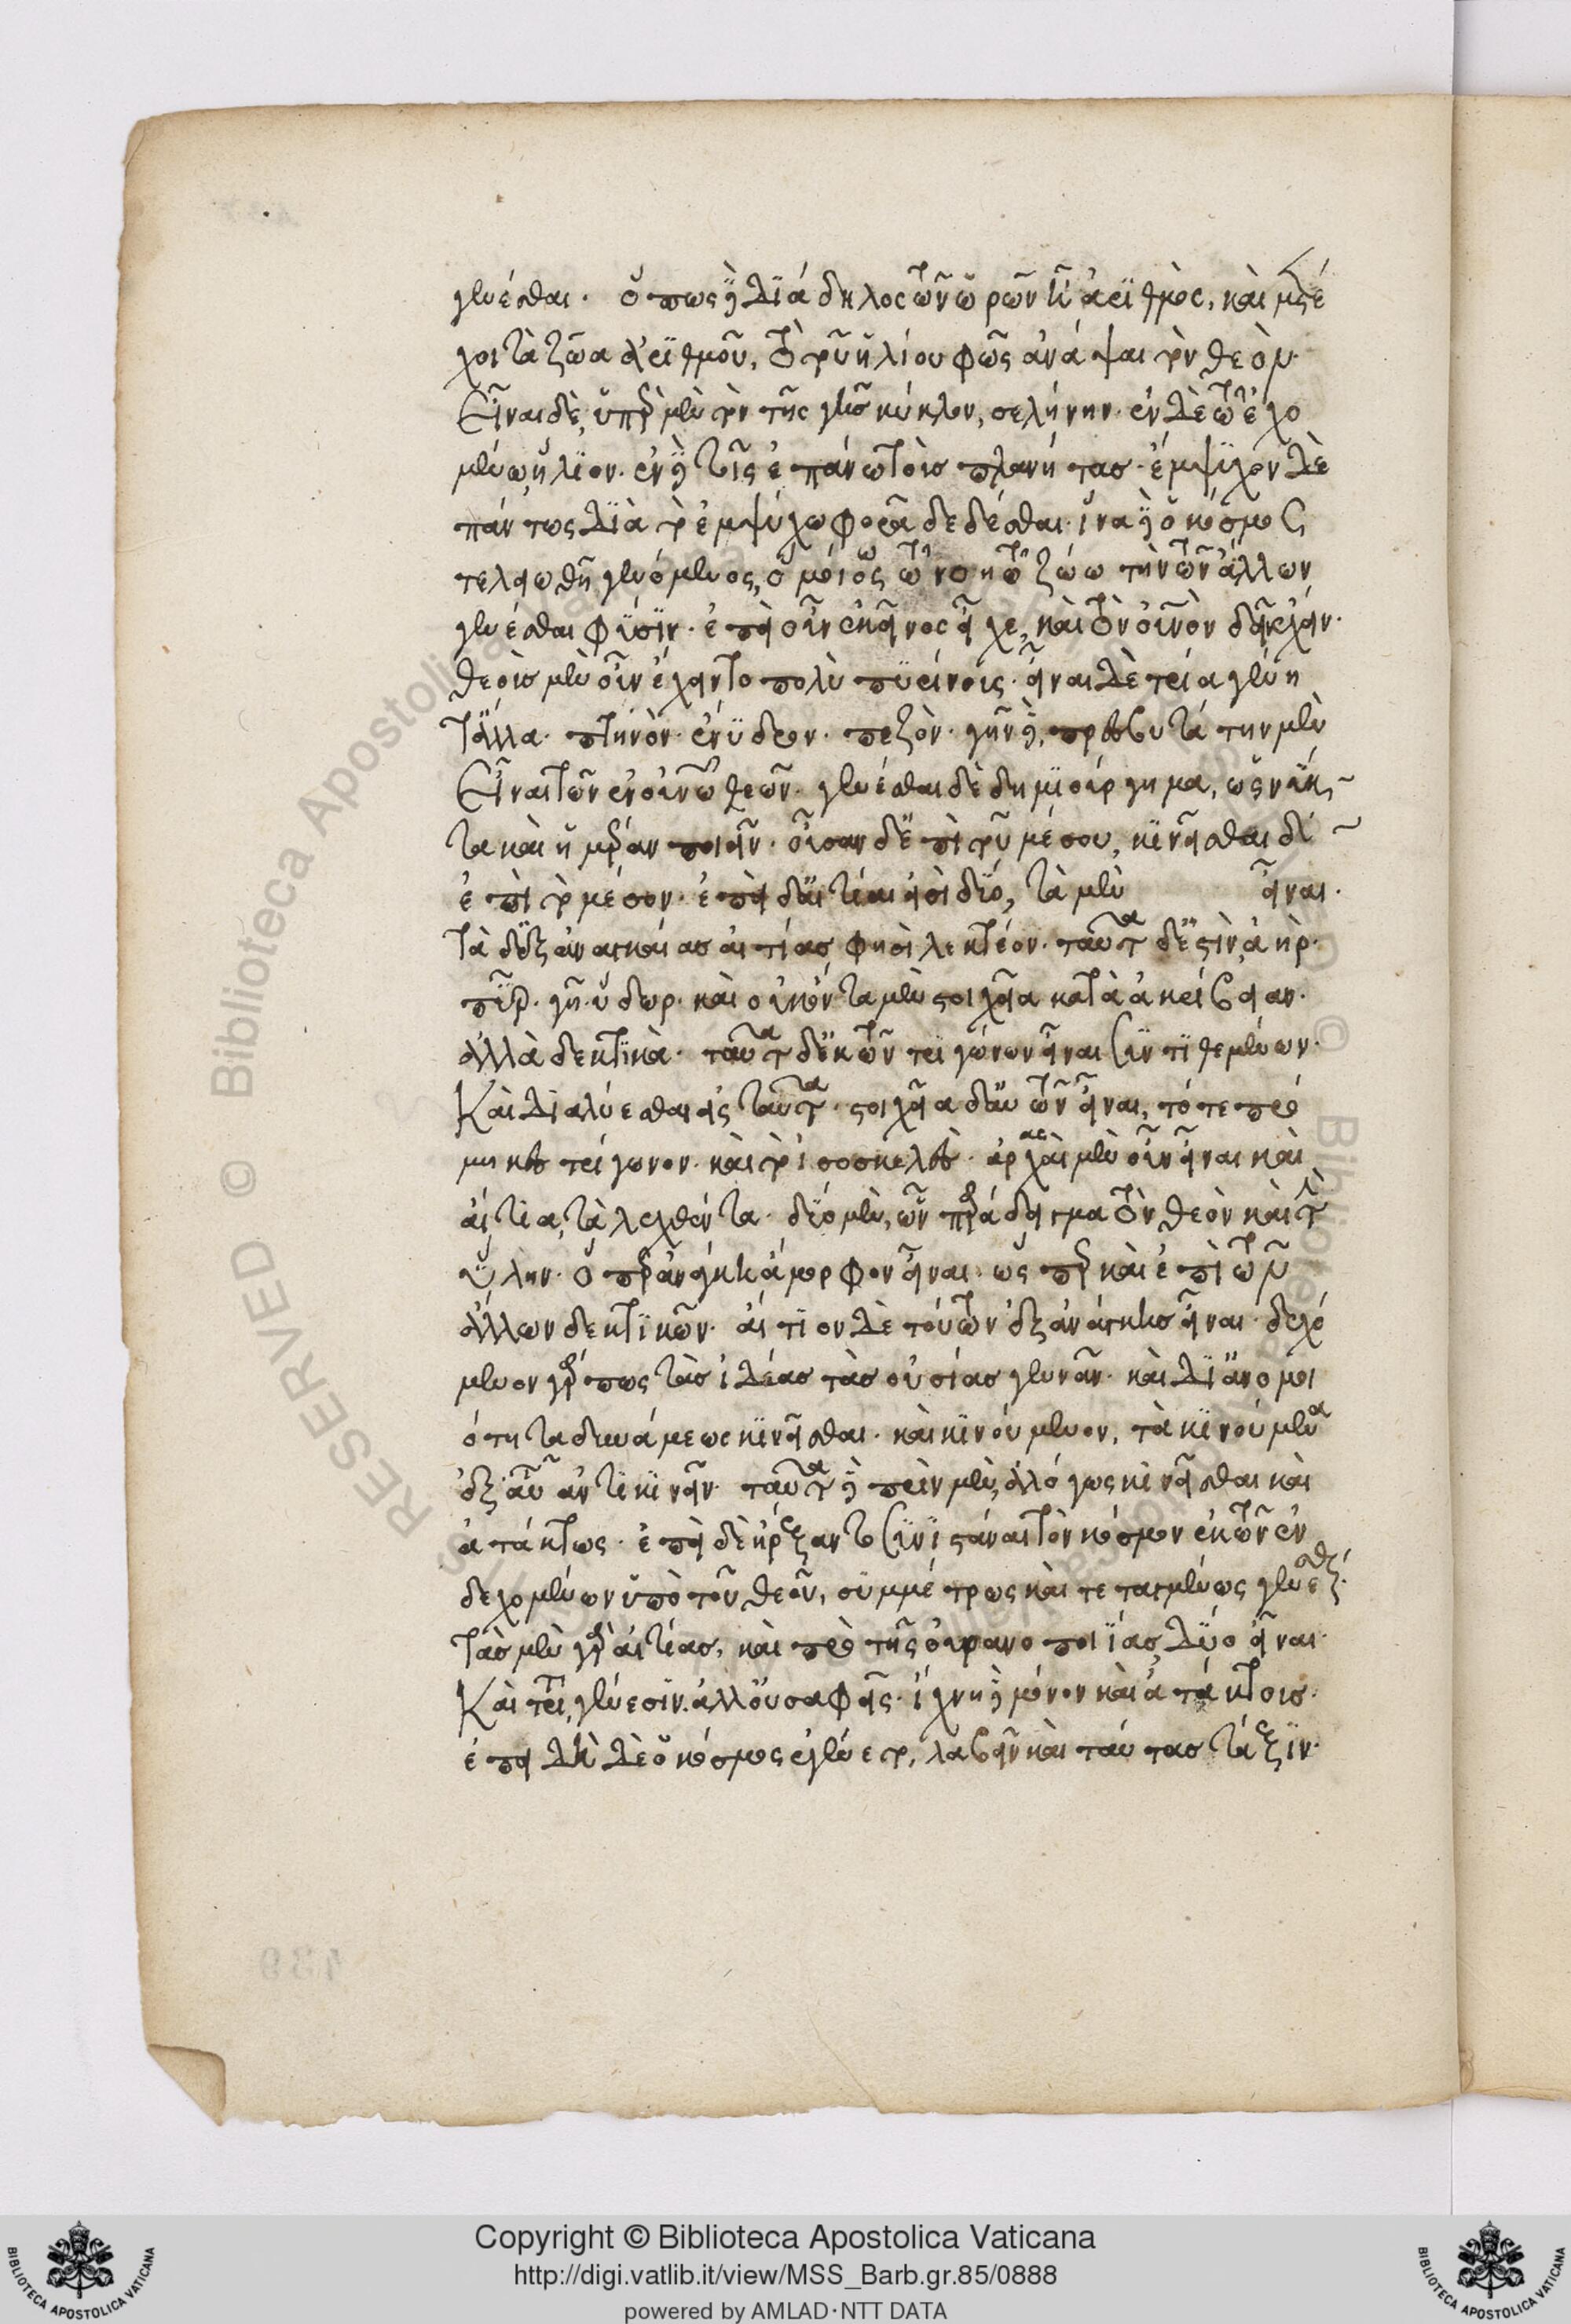 γενέσθαι. ὅπως δὲ διάδηλος τῶν ὡρῶν ἦν ἀριθμὸς, καὶ μετέ
χοι τὰ ζῶα ἀριθμοῦ, τὸ τοῦ ἡλίου φῶς ἀνάψαι τὸν θεόν.
Εἶναι δὲ, ὑπὲρ μὲν τὸν τῆς γῆς κύκλον, σελήνην. ἐν δὲ τῶ ἐχο
μένω ἥλιον. ἐν δὲ τοῖς ἐπάνω τοὺς πλανήτας. ἔμψυχον δὲ
πάντως διὰ τὸ ἐμψύχω φορᾶ δεδέσθαι. ἵνα δὲ ὁ κόσμος
τελειωθῆ γενόμενος, ὅμοιος τῶ νοητῶ ζώω τὴν τῶν ἄλλων
γενέσθαι φύσιν. ἐπεὶ οὖν ἐκεῖνος εἶχε, καὶ τὸν οὐνὸν δεῖν ἔχειν.
θεοὺς μὲν οὖν ἔχειν τὸ πολὺ πυρίνους. εἶναι δὲ τρία γένη
τἄλλα. πτηνὸν. ἔνυδρον. πεζὸν. γῆν δὲ, πρεσβυτάτην μὲν
Εἶναι τῶν ἐν οὐνῶ θεῶν. γενέσθαι δὲ δημιούργημα, ὡς νύκ
τα καὶ ἡμέραν ποιεῖν. οὖσαν δ' ἐπὶ τοῦ μέσου, κινεῖσθαι
ἐπὶ τὸ μέσον. ἐπεὶ δ' αἰτίαι εἰσὶ δύο, τὰ μὲν εἶναι.
τὰ δ' ἐξ ἀναγκαίας αἰτίας φησὶ λεκτέον. ταῦτα δ' ἐστὶν ἀήρ.
πῦρ. γῆ. ὕδωρ. καὶ οὐκ ὄντα μὲν στοιχεῖα κατὰ ἀκρίβειαν.
ἀλλὰ δεκτικὰ. ταῦτα δ' ἐκ τῶν τριγώνων εἶναι συντιθεμένων.
Καὶ διαλύεσθαι εἰς ταῦτα. στοιχεῖα δ' αὐτῶν εἶναι, τό τε προ
μηκες τρίγωνον. καὶ τὸ ἰσοσκελὲς. ἀρχὰς μὲν οὖν εἶναι καὶ
αἴτια, τὰ λεχθέντα. δύο μὲν, ὧν παράδειγμα τὸν θεὸν καὶ τὴν
ὕλην. ὅπερ ἀνάγκη ἄμορφον εἶναι. ὥσπερ καὶ ἐπὶ τῶν
ἄλλων δεκτικῶν. αἴτιον δὲ τούτων ἐξ ἀνάγκης εἶναι. δεχό
μενον γάρ πως τὰς ἰδέας τὰς οὐσίας γεννᾶν. καὶ δι' ἀνομοι
ότητα δυνάμεως κινεῖσθαι. καὶ κινούμενον, τὰ κινούμενα
ἐξ αὐτ ἀντικινεῖν. ταῦτα δὲ πρὶν μὲν, ἀλόγως κινεῖσθαι καὶ
ἀτάκτως. ἐπεὶ δὲ ἤρξαντο συνιστάναι τὸν κόσμον ἐκ τῶν ἐν
δεχομένων ὑπὸ τοῦ θεοῦ, συμμέτρως καὶ τεταγμένως γενέσθαι.
Τὰς μὲν γὰρ αἰτίας, καὶ πρὸ τῆς οὐρανοποιίας δύο εἶναι.
Καὶ τρίτ γένεσιν. ἀλλ' οὐ σαφεῖς. ἴχνη δὲ μόνον καὶ ἀτάκτους.
ἐπειδὴ δὲ ὁ κόσμος ἐγένετο, λαβεῖν καὶ ταύτας τάξιν.
Copyright © Biblioteca Apostolica Vaticana
http://digi.vatlib.it/view/MSS_Barb.gr.85/0888
powered by AMLAD·NTT DATA